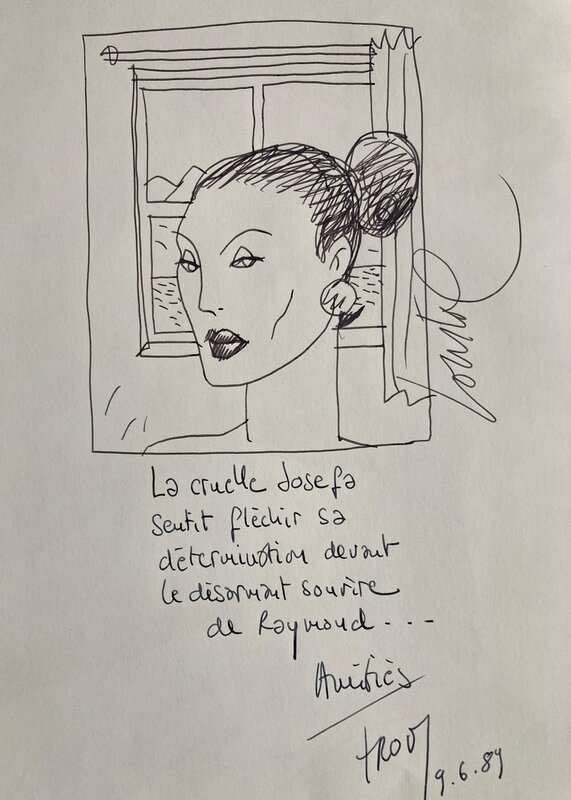 La cruelle Josefa
sentit fléchir sa
détermination devant
le désarmant sourire
de Raymond...
Amitiés
9.6.89